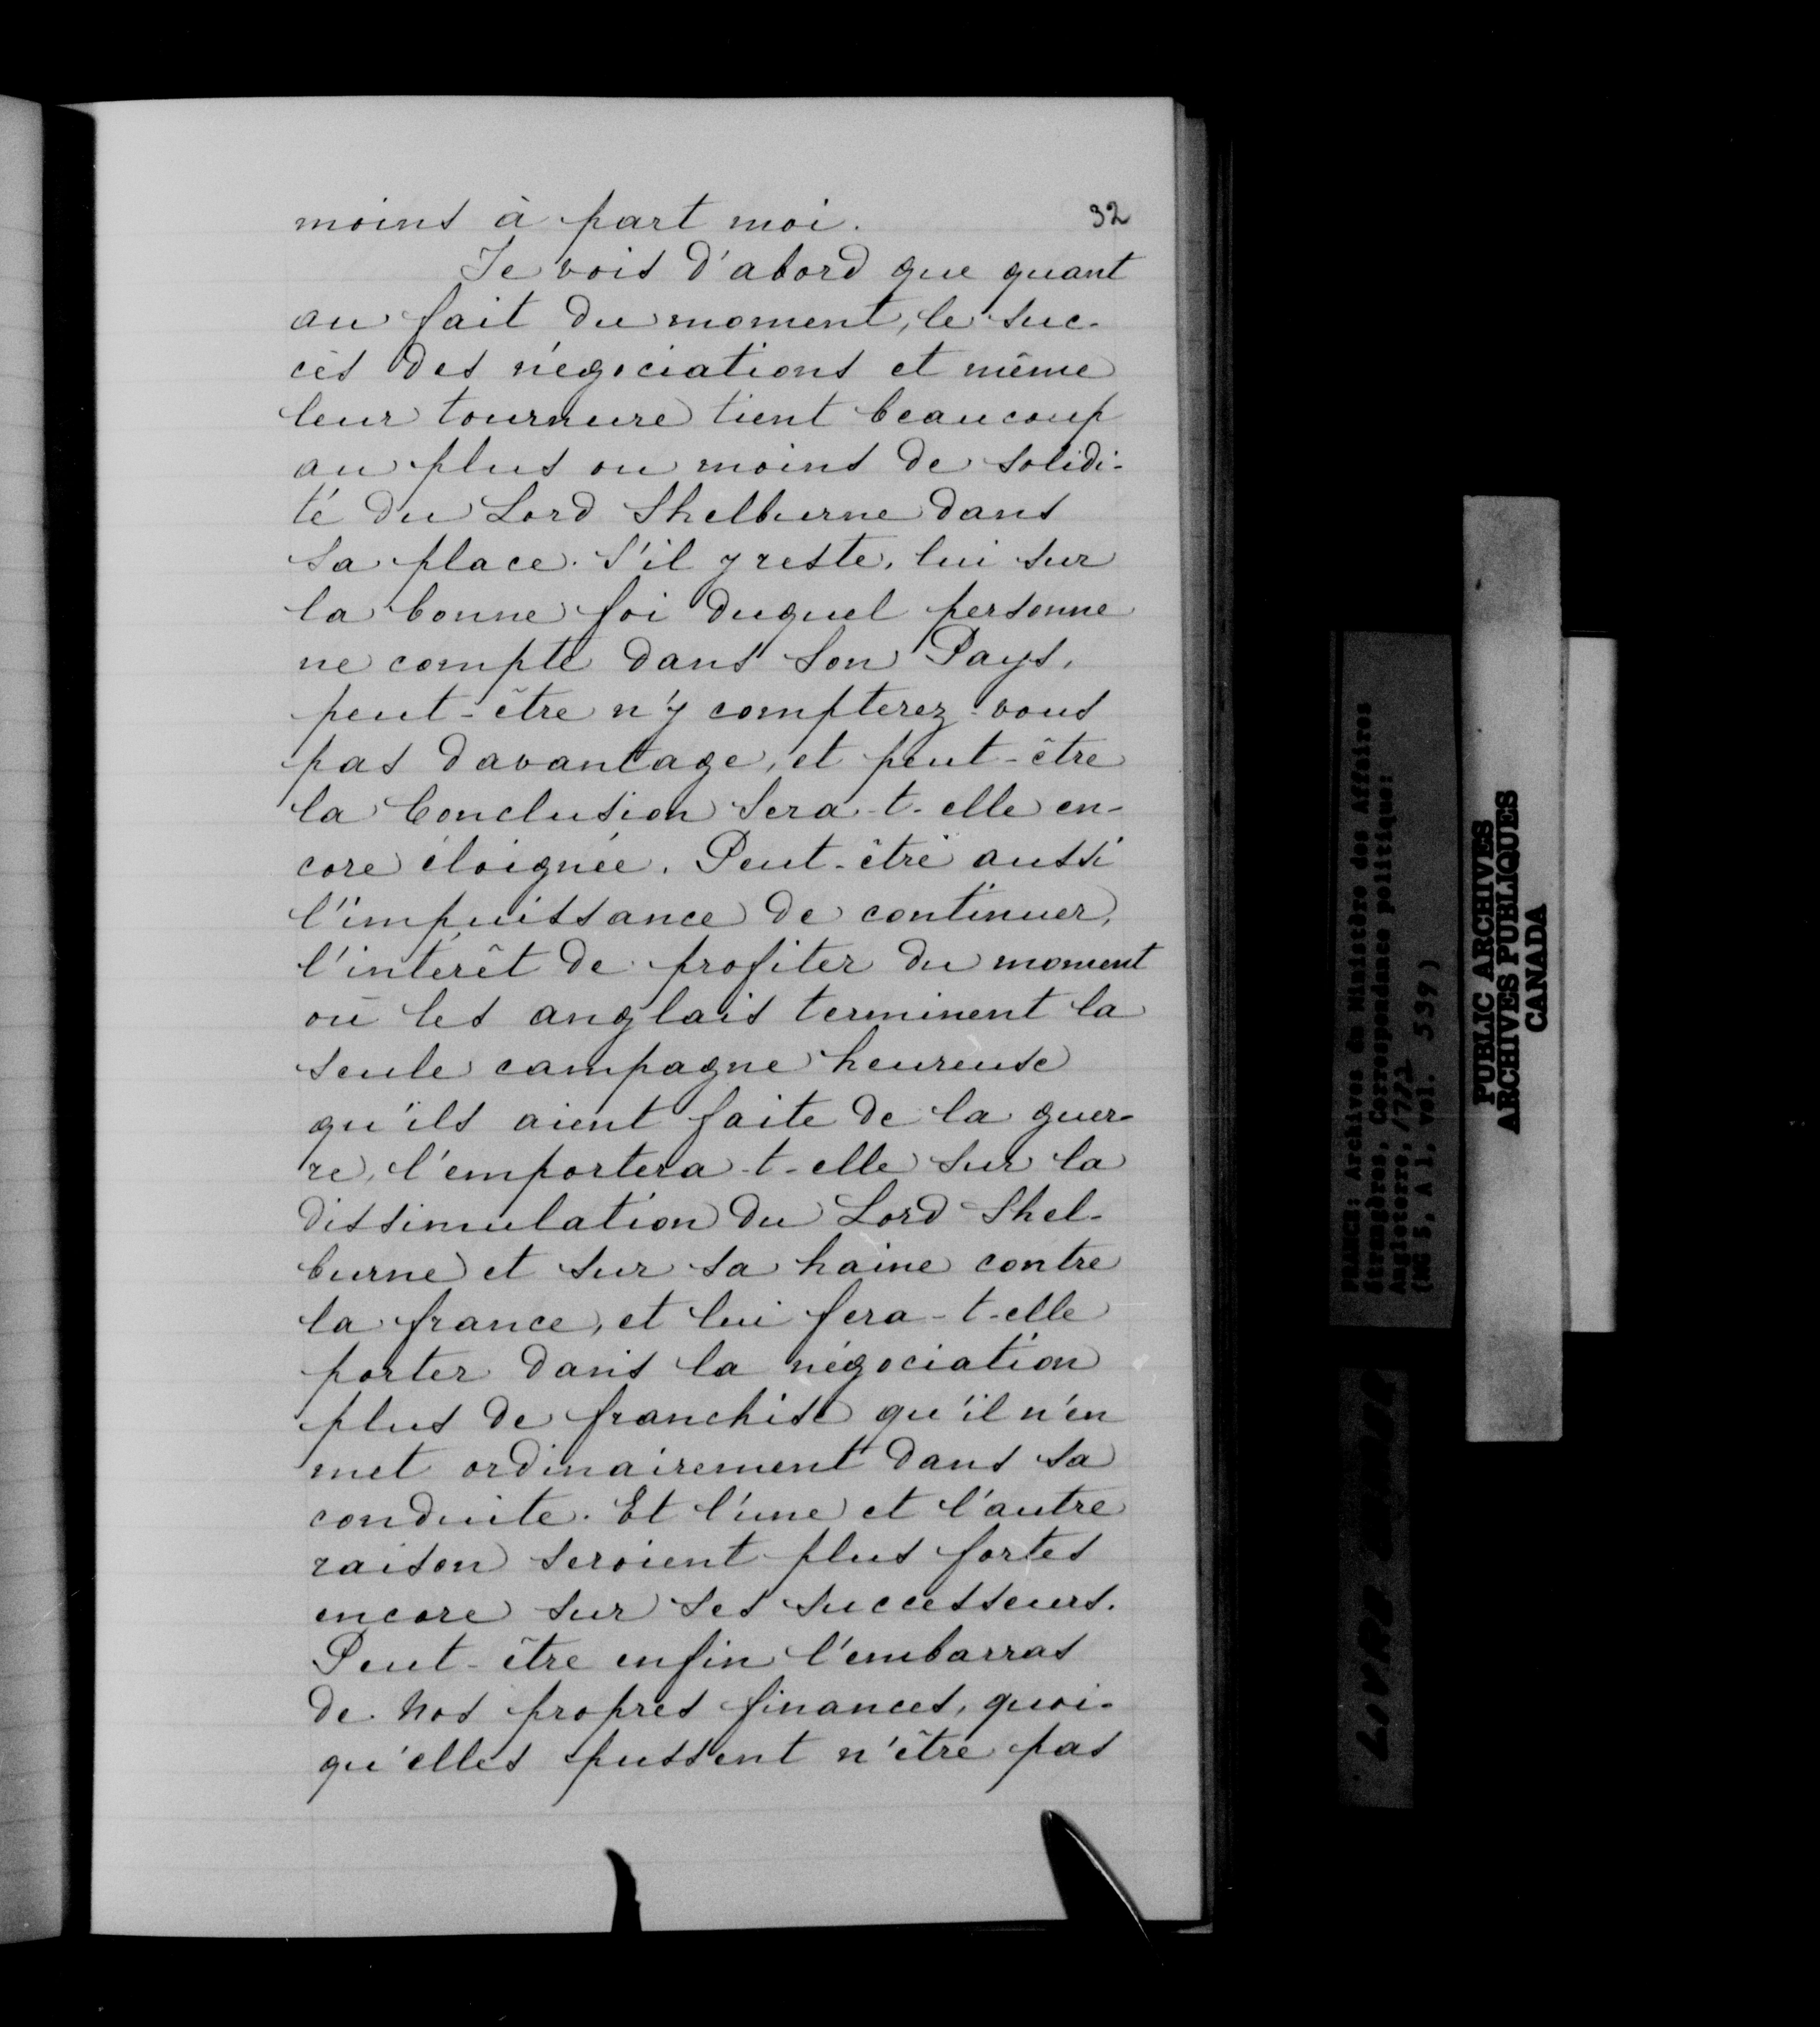 32
moins à part moi.
Je vois d'abord que quant
au fait du moment, le suc-
cès des négociations et même
leur tournure tient beaucoup
au plus ou moins de solidi-
té du Lord Shelburne dans
sa place. S'il y reste, lui sur
la bonne foi duquel personne
ne compte dans son Pays,
peut-être n'y compterez-vous
pas davantage, et peut-être
la Conclusion sera-t-elle en-
core éloignée. Peut-être aussi
l'impuissance de continuer,
l'intérêt de profiter du moment
où les anglais terminent la
seule campagne heureuse
qu'ils aient faite de la guer-
re, l'emportera-t-elle sur la
dissimulation du Lord Shel-
burne et sur sa haine contre
la france, et lui fera-t-elle
porter dans la négociation
plus de franchise qu'il n'en
met ordinairement dans sa
conduite. Et l'une et l'autre
raison seroient plus fortes
encore sur ses successeurs.
Peut-être enfin l'embarras
de nos propres finances, quoi-
qu'elles pussent n'être pas
FRANCE: Archives du Ministère des Affaires
étrangères, Correspondance politique:
Angleterre,
(MG 5, A 1, vol. 539)
PUBLIC ARCHIVES
ARCHIVES PUBLIQUES
CANADA